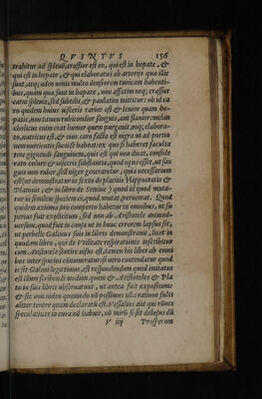 QVINTVS 156
trahitur ad splenē, crassior est eo, qui est in hepate, &
qui est in hepate, & qui elaboratus ab arterijs quæ illic
sunt, atq; adeo uenis multo densiorem tunicam habenti-
bus, quàm quæ sunt in hepate, non assatim noq; crassus
carni splenis, sed subtilis, & paulatim nutritur: ob id ca
ro quidem huius uisceris rarior est & leuior quàm he-
patis, non tamen rubicundior
cholicus enim erat humor quem purgauit, noq; elabora-
to, nutritus est, & eius caro facta est nigra ut ad porto
uem nutrientis succi se habeat: ex quo si haberet faculta
tem gignendi sanguinem, quis est qui non dicat, consid̄e
rato colore & uisceris substantia, quod opus esset, ut san
guis non ruber, sed niger generetur, quia necessarium
est (ut demonstratur in sexto de placitis Hippocratis &
Platonis, & in libro de Semine) quod id quod muta-
tur in similem speciem ei, quod mutat, perueniat. Quod
quidem axioma pro comperto habetur in omnibus, ut su
perius fuit explicitum, sed non ab Aristotele animad-
uersum, quod fuit in causa ut in hunc errorem lapsus sit,
ut perbelle Galenus suis in libris demonstrauit, sicet in
quodam libro, qui de Vtilitate respirationis inscribitur
cum Aristotele sentire uisus est. Ac non hic liber ab omni
bus inter spurios connumeratur: si uero contendatur quod
is sit Galeni legitimus, est respondendum quod imitatus
est illum scribendi modum, quem & Aristoteles & Pla
to in suis libris obseruarunt, ut antea fuit expositum:
& sic non uideo quomodo nō possimus ulla ratione falsi
aliter tenere quàm declaratū est. Vessalius aūt qui uirtute
speculatiuæ in cura nō habuit, nō mirū si sit delusus dū
V iiij Prosperum